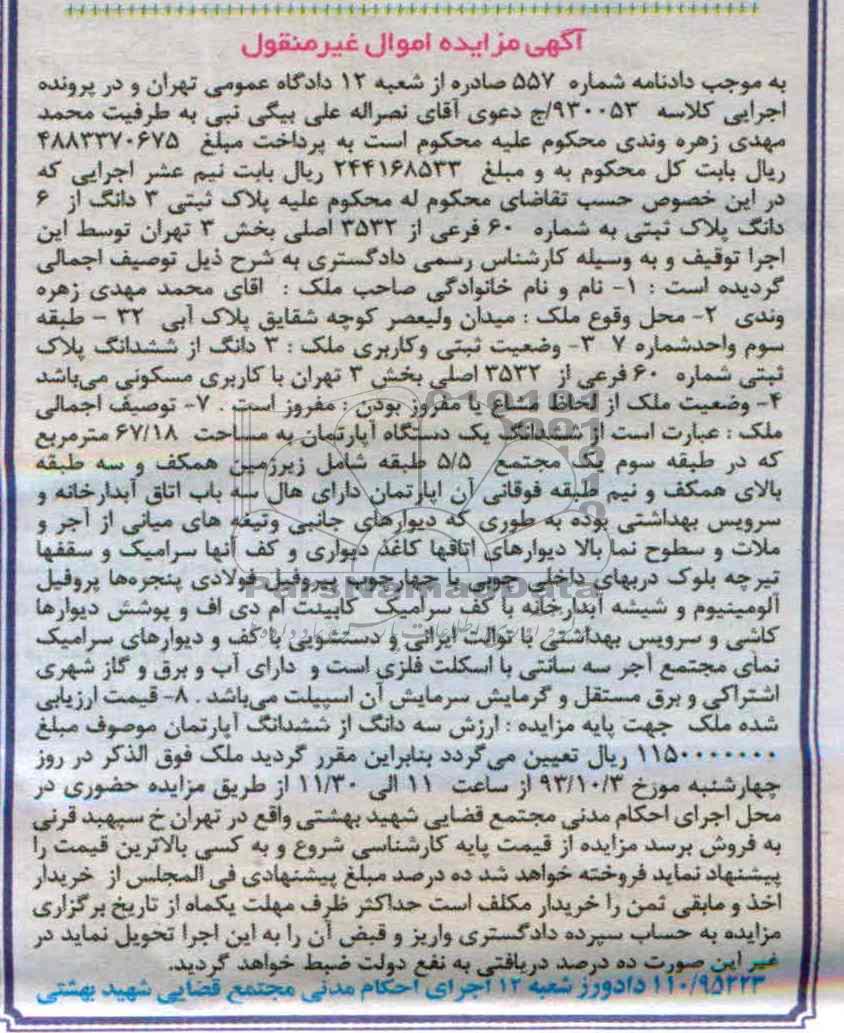 آگهی مزایده اموال غیرمنقول
به موجب دادنامه شماره ۵۵۷ صادره از شعبه ۱۲ دادگاه عمومی تهران و در پرونده
اجرایی کلاسه ۹۳۰۰۵۳/ج دعوی آقای نصراله علی بیگی نبی به طرفیت محمد
مهدی زهره وندی محکوم علیه محکوم است به پرداخت مبلغ ۴۸۸۳۳۷۰۶۷۵
ریال بابت کل محکوم به و مبلغ ۲۴۴۱۶۸۵۳۳ ریال بابت نیم عشر اجرایی که
در این خصوص حسب تقاضای محکوم له محکوم علیه پلاک ثبتی ۳ دانگ از ۶
دانگ پلاک ثبتی به شماره ۶۰ فرعی از ۳۵۳۲ اصلی بخش ۳ تهران توسط این
اجرا توقیف و به وسیله کارشناس رسمی دادگستری به شرح ذیل توصیف اجمالی
گردیده است : ۱- نام و نام خانوادگی صاحب ملک : اقای محمد مهدی زهره
وندی ۲- محل وقوع ملک : میدان ولیعصر کوچه شقایق پلاک آبی ۳۲ – طبقه
سوم واحدشماره ۷ ۳- وضعیت ثبتی وکاربری ملک : ۳ دانگ از ششدانگ پلاک
ثبتی شماره ۶۰ فرعی از ۳۵۳۲ اصلی بخش ۳ تهران با کاربری مسکونی می‌باشد
۴- وضعیت ملک از لحاظ مشاع یا مفروز بودن : مفروز است . ۷- توصیف اجمالی
ملک : عبارت است از ششدانگ یک دستگاه آپارتمان به مساحت ۶۷/۱۸ مترمربع
که در طبقه سوم یک مجتمع ۵/۵ طبقه شامل زیرزمین همکف و سه طبقه
بالای همکف و نیم طبقه فوقانی آن اپارتمان دارای هال سه باب اتاق آبدارخانه و
سرویس بهداشتی بوده به طوری که دیوارهای جانبی وتیغه های میانی از آجر و
ملات و سطوح نما بالا دیوارهای اتاقها کاغذ دیواری و کف آنها سرامیک و سقفها
تیرچه بلوک دربهای داخلی چوبی با چهارچوب پیروفیل فولادی پنجره‌ها پروفیل
آلومینیوم و شیشه آبدارخانه با کف سرامیک کابینت ام دی اف و پوشش دیوارها
کاشی و سرویس بهداشتی با توالت ایرانی و دستشویی با کف و دیوارهای سرامیک
نمای مجتمع آجر سه سانتی با اسکلت فلزی است و دارای آب و برق و گاز شهری
اشتراکی و برق مستقل و گرمایش سرمایش آن اسپیلت می‌باشد . ۸- قیمت ارزیابی
شده ملک جهت پایه مزایده : ارزش سه دانگ از ششدانگ آپارتمان موصوف مبلغ
۱۱۵۰۰۰۰۰۰۰ ریال تعیین می‌گردد بنابراین مقرر گردید ملک فوق الذکر در روز
چهارشنبه مورخ ۹۳/۱۰/۳ از ساعت ۱۱ الی ۱۱/۳۰ از طریق مزایده حضوری در
محل اجرای احکام مدنی مجتمع قضایی شهید بهشتی واقع در تهران خ سپهبد قرنی
به فروش برسد مزایده از قیمت پایه کارشناسی شروع و به کسی بالاترین قیمت را
پیشنهاد نماید فروخته خواهد شد ده درصد مبلغ پیشنهادی فی المجلس از خریدار
اخذ و مابقی ثمن را خریدار مکلف است حداکثر ظرف مهلت یکماه از تاریخ برگزاری
مزایده به حساب سپرده دادگستری واریز و قبض آن را به این اجرا تحویل نماید در
غیر این صورت ده درصد دریافتی به نفع دولت ضبط خواهد گردید.
۱۱۰/۹۵۲۲۳ دادورز شعبه ۱۲ اجرای احکام مدنی مجتمع قضایی شهید بهشتی
ParsNamadData